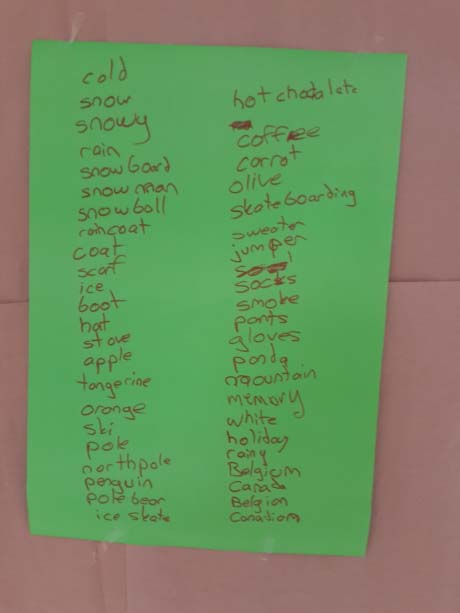 cold
snow
snowy
rain
snowboard
snowman
snowball
raincoat
coat
scarf
ice
boot
hat
stove
apple
tangerine
orange
ski
pole
northpole
penguin
pole bear
ice skate
hot chadalete
coffee
carrot
olive
skateboarding
sweater
jumper
socks
smoke
pants
gloves
panda
mountain
memory
white
holiday
rainy
Belgium
Canada
Belgian